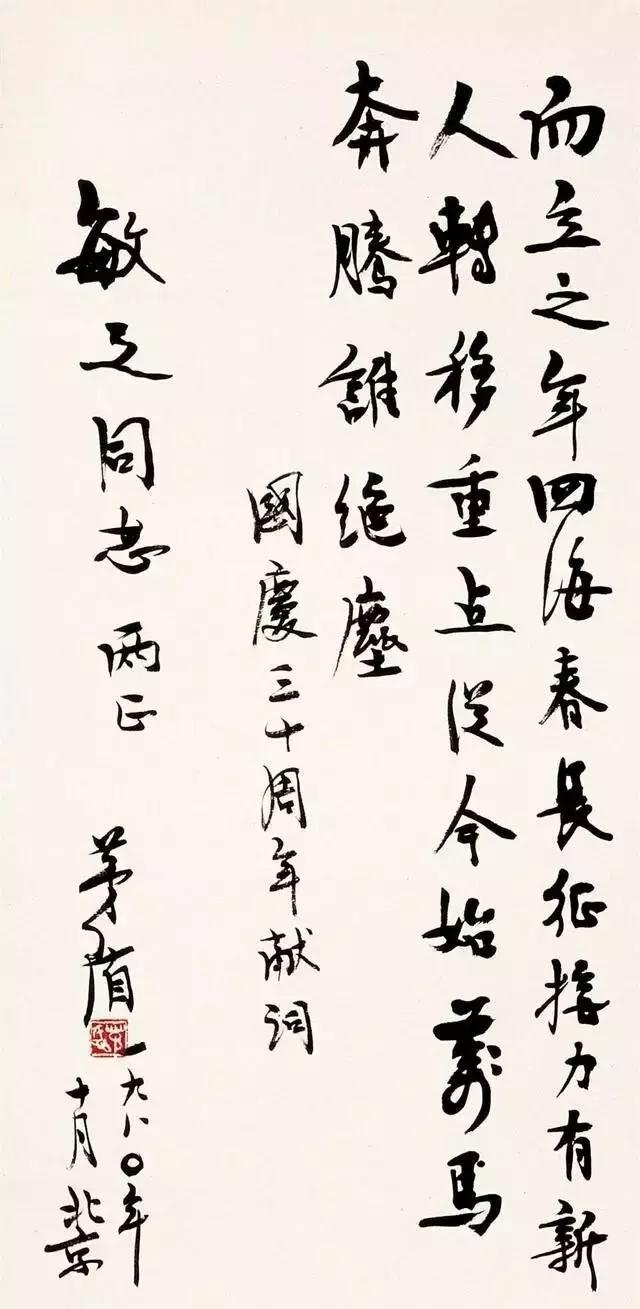 而立之年四海春長征接力有新
人轉移重点從今始萬馬
奔騰誰絶塵
國慶三十周年献詞
敏之同志 兩正 茅盾
一九八〇年
十月北京